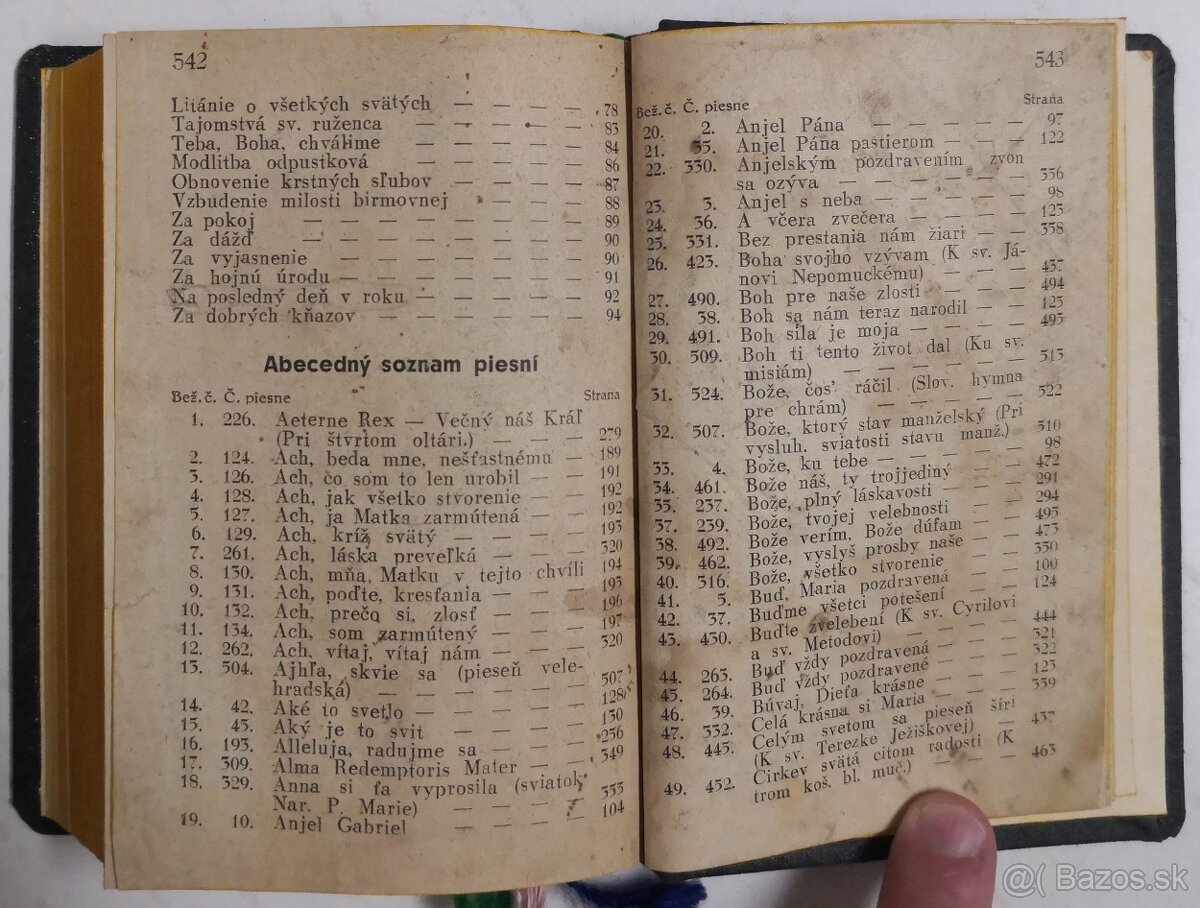 542
Litánie o všetkých svätých — — — — 78
Tajomstvá sv. ruženca — — — — — 83
Teba, Boha, chválime — — — — — 84
Modlitba odpustková — — — — — 86
Obnovenie krstných sľubov — — — — 87
Vzbudenie milosti birmovnej — — — 88
Za pokoj — — — — — — — — 89
Za dážď — — — — — — — — 90
Za vyjasnenie — — — — — — — 90
Za hojnú úrodu — — — — — — — 91
Na posledný deň v roku — — — — — 92
Za dobrých kňazov — — — — — — 94
Abecedný soznam piesní
Bež. č. Č. piesne Strana
1. 226. Aeterne Rex — Večný náš Kráľ
(Pri štvrtom oltári.) — — — 279
2. 124. Ach, beda mne, nešťastnému — 189
3. 126. Ach, čo som to len urobil — — 191
4. 128. Ach, jak všetko stvorenie — — 192
5. 127. Ach, ja Matka zarmútená — — 192
6. 129. Ach, kríž svätý — — — — 193
7. 261. Ach, láska preveľká — — — 320
8. 130. Ach, mňa, Matku v tejto chvíli 194
9. 131. Ach, poďte, kresťania — — — 195
10. 132. Ach, prečo si, zlosť — — — 196
11. 134. Ach, som zarmútený — — — 197
12. 262. Ach, vítaj, vítaj nám — — — 320
13. 504. Ajhľa, skvie sa (pieseň vele-
hradská) — — — — — — 507
14. 42. Aké to svetlo — — — — — 128
15. 45. Aký je to svit — — — — — 130
16. 193. Alleluja, radujme sa — — — 256
17. 309. Alma Redemptoris Mater — — 349
18. 329. Anna si ťa vyprosila (sviatok
Nar. P. Marie) — — — — 355
19. 10. Anjel Gabriel — — — — 104
543
Bež. č. Č. piesne Strana
20. 2. Anjel Pána — — — — — 97
21. 35. Anjel Pána pastierom — — — 122
22. 330. Anjelským pozdravením zvon
sa ozýva — — — — — 336
23. 3. Anjel s neba — — — — — 98
24. 36. A včera zvečera — — — — 123
25. 331. Bez prestania nám žiari — — 338
26. 423. Boha svojho vzývam (K sv. Já-
novi Nepomuckému) — — — 437
27. 490. Boh pre naše zlosti — — — 494
28. 38. Boh sa nám teraz narodil — — 125
29. 491. Boh sila je moja — — — — 495
30. 509. Boh ti tento život dal (Ku sv.
misiám) — — — — — — 513
31. 524. Bože, čos' ráčil (Slov. hymna
pre chrám) — — — — — 522
32. 507. Bože, ktorý stav manželský (Pri
vysluh. sviatosti stavu manž.) 510
33. 4. Bože, ku tebe — — — — — 98
34. 461. Bože náš, ty trojjediný — — 472
35. 237. Bože, plný láskavosti — — — 291
37. 239. Bože, tvojej velebnosti — — 294
38. 492. Bože verím, Bože dúfam — — 495
39. 462. Bože, vyslyš prosby naše — — 473
40. 316. Bože, všetko stvorenie — — 350
41. 5. Buď, Maria pozdravená — — 100
42. 37. Buďme všetci potešení — — 124
43. 430. Buďte zvelebení (K sv. Cyrilovi
a sv. Metodovi) — — — — 444
44. 263. Buď vždy pozdravená — — — 321
45. 264. Buď vždy pozdravené — — — 322
46. 39. Búvaj, Dieťa krásne — — — 125
47. 332. Celá krásna si Maria — — — 339
48. 445. Celým svetom sa pieseň šíri
(K sv. Terezke Ježiškovej) — 457
49. 452. Cirkev svätá citom radosti (K
trom koš. bl. muč.) — — — 463
@( Bazos.sk